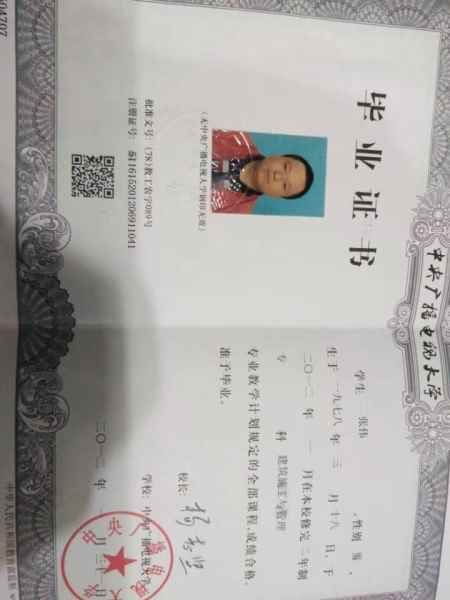 中央广播电视大学
毕业证书
（无中央广播电视大学钢印无效）
批准文号：(78)教工农字089号
注册证号：511615201206911041
学生 张伟 ，性别 男 ，
生于一九七八年 三 月十六 日，于
二〇一二年 一 月在本校修完二年制
专 科 建筑施工与管理
专业教学计划规定的全部课程，成绩合格，
准予毕业。
校长：
学校：中央广播电视大学
二〇一二年 一 月三十一日